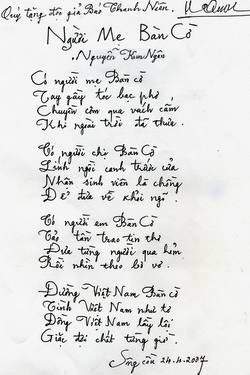 Quý tặng độc giả Báo Thanh Niên.
Người Mẹ Bàn Cờ
Nguyễn Kim Ngân
Có người mẹ Bàn cờ
Tay gầy tóc bạc phơ
Chuyền cơm qua vách cấm
Khi ngoài trời đã thưa.
Có người chị Bàn Cờ
Linh ngồi canh trước cửa
Nhận sinh viên là chồng
Để đưa về khởi nghĩa.
Có người em Bàn Cờ
Tản tán trao tin thơ
Đưa từng người qua hẻm
Rồi nhìn theo bơ vơ.
Đường Việt Nam Bàn cờ
Tình Việt Nam như tơ
Đồng Việt Nam lầy lội
Giặc đợi chết từng giờ.
24.4.2007